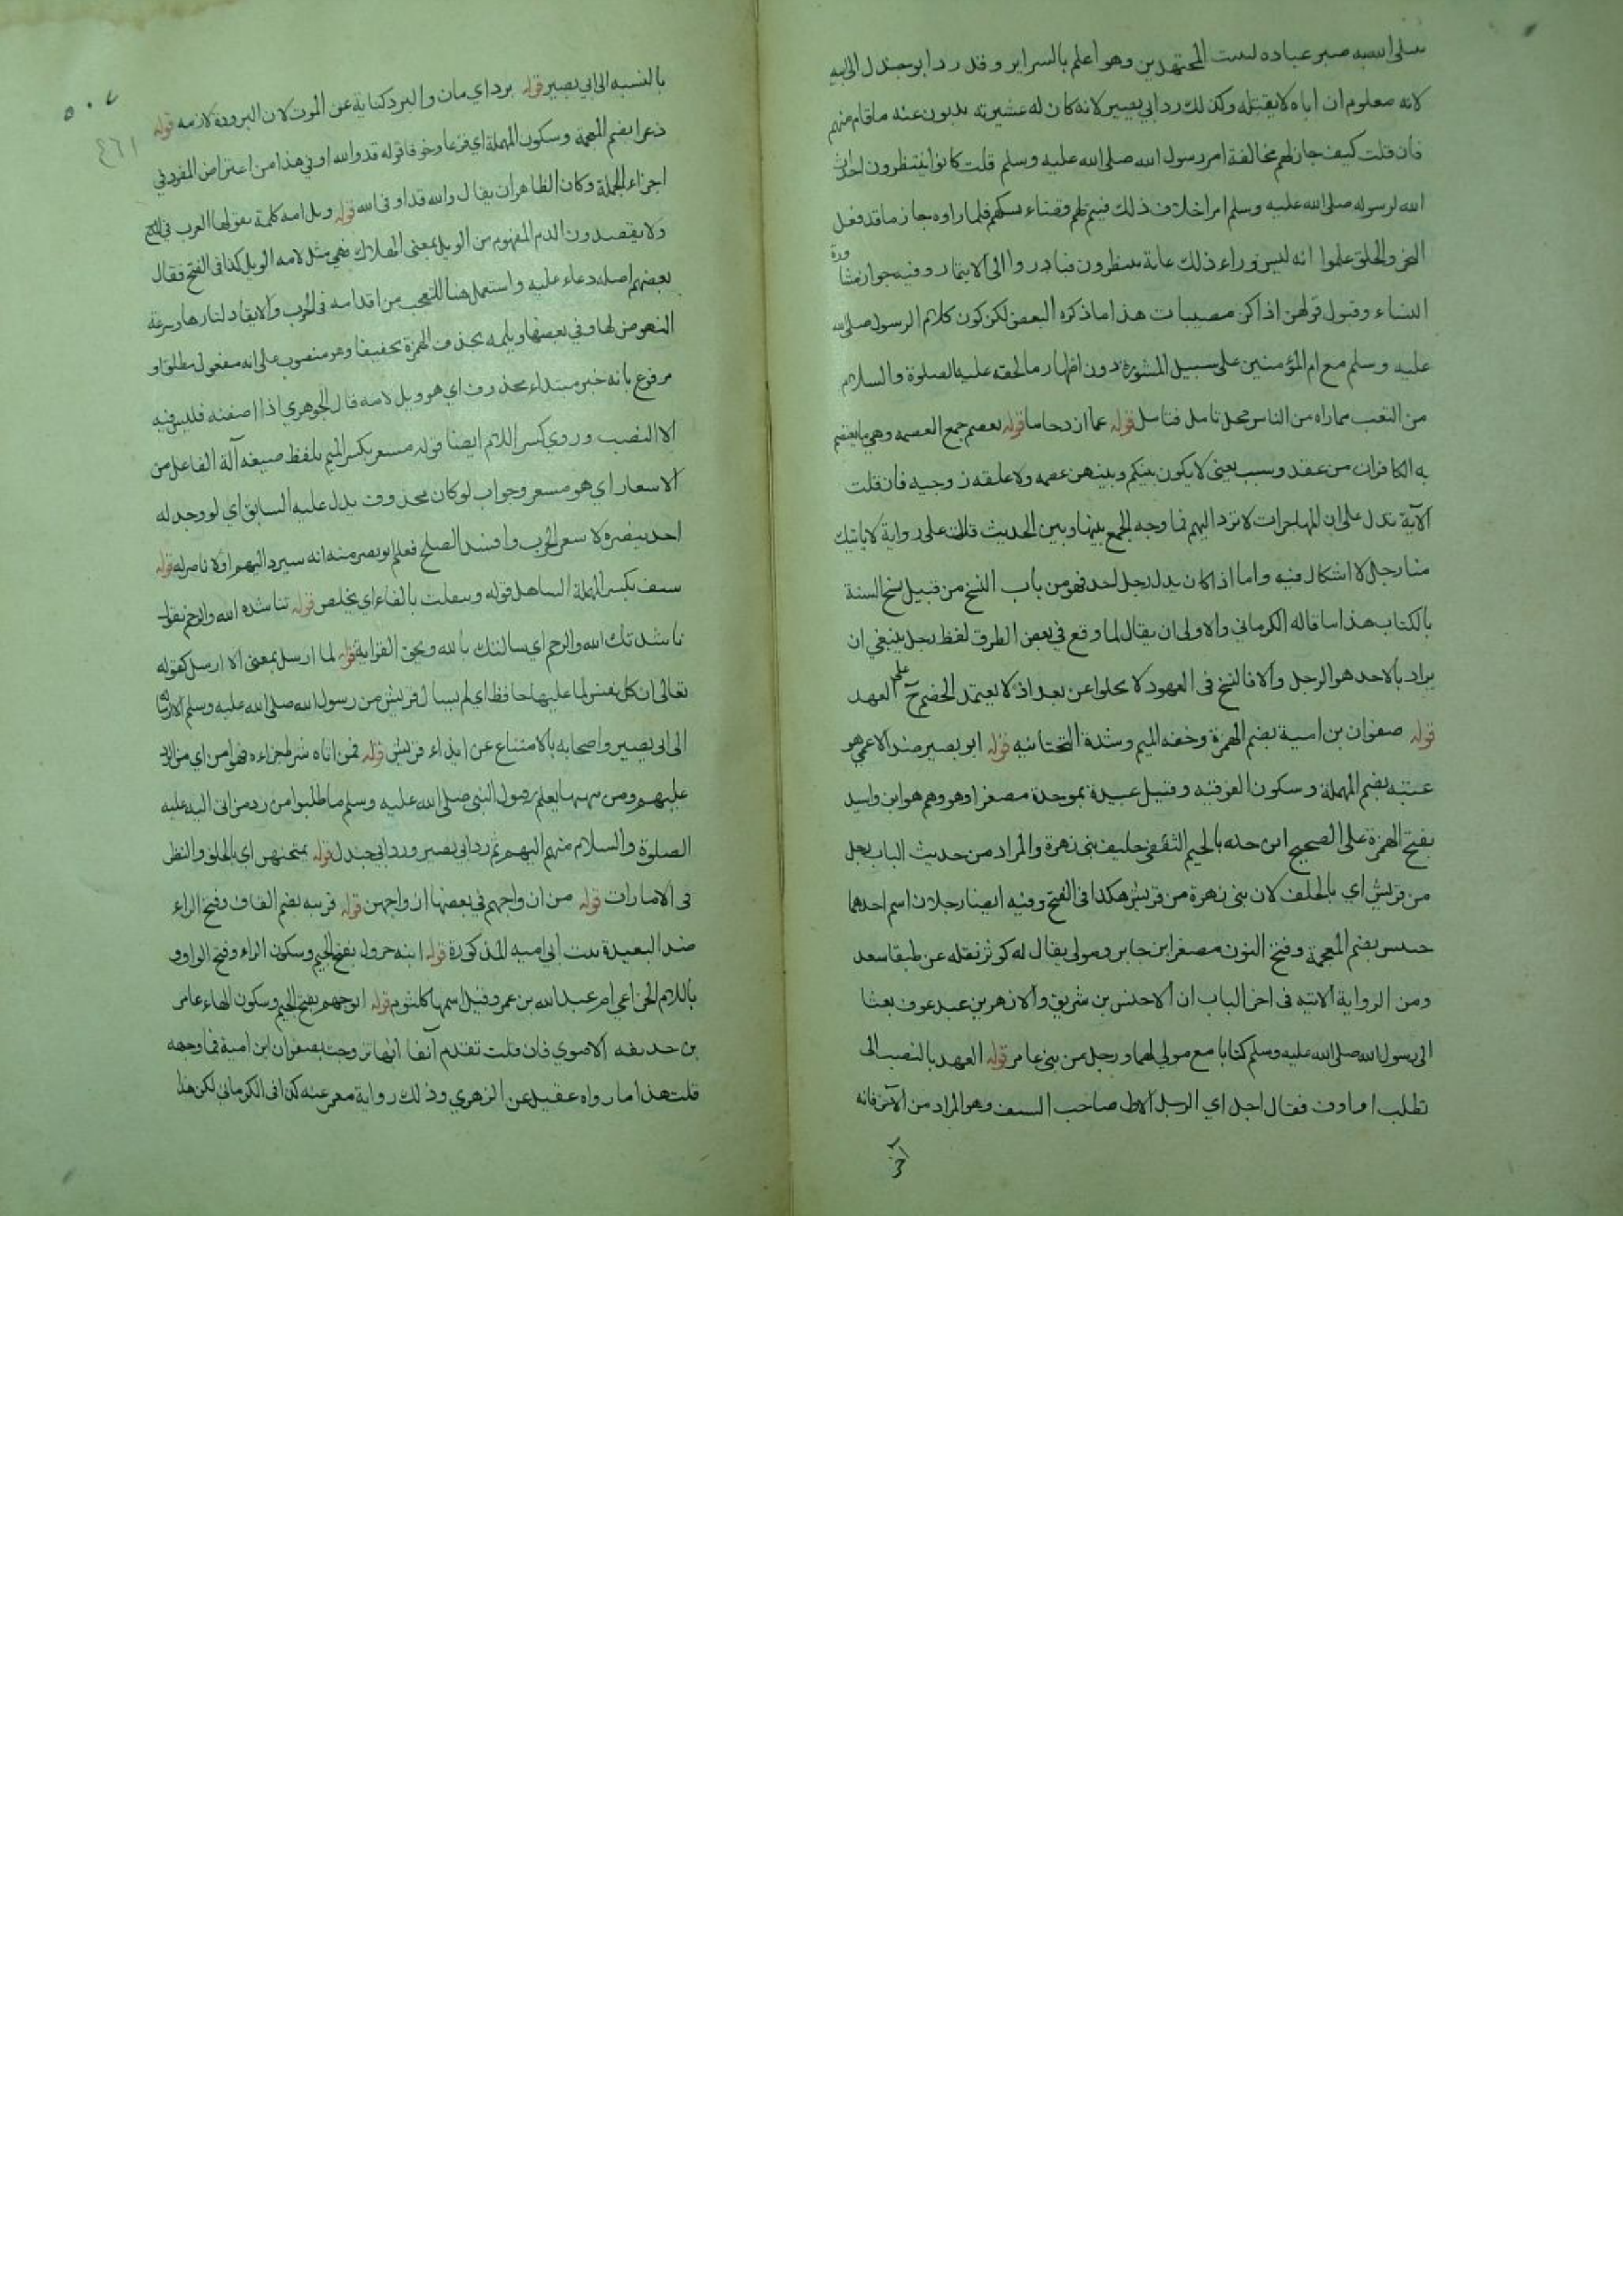 صبر عباده لست المجتهدين وهو اعلم بالسراير وقد رد ابو جندل الى ابيه
لانه معلوم ان اباه لا يقتله وكذلك رد ابي بصير لانه كان له عشيرته يذبون عنه ما قام منهم
فان قلت كيف جاز لهم مخالفة امر رسول الله صلى الله عليه وسلم قلت كانوا ينتظرون احداث
الله لرسوله صلى الله عليه وسلم امرا خلاف ذلك فيتم لهم قضاء نسكهم فلما راوه جازما قد فعل
النحر والحلق علموا انه ليس وراء ذلك غاية ينتظرون فبادروا الى الايتمار وفيه جواز مشا
ورة
النساء وقبول قولهن اذا كن مصيبات هذا ما ذكره البعض لكن كون كلام الرسول صلى الله
عليه وسلم مع ام المؤمنين على سبيل المشورة دون اظهار ما لحقه عليه الصلوة والسلام
من التعب مما راه من الناس محل تامل فتامل قوله عما ان دحاما قوله بعصم جمع العصمه وهي ما يعتصم
به الكافرات من عقد وسبب يعنى لا يكون بينكم وبينهن عصمه ولا علقه زوجيه فان قلت
الآية تدل على ان المهاجرات لا ترد اليهم فما وجه الجمع بينها وبين الحديث قلت على رواية لا ياتيك
منا رجل لا اشكال فيه واما اذا كان بدل رجل احد فهو من باب النسخ من قبيل نسخ السنة
بالكتاب هذا ما قاله الكرماني والاولى ان يقال لما وقع في بعض الطرق لفظ رجل ينبغي ان
يراد بالاحد هو الرجل والا فالنسخ فى العهود لا يخلوا عن بعد اذ لا يعتمد الخصم ح على العهد
قوله صفوان بن امية بضم الهمزة وخفه الميم وشدة التحتانيه قوله ابو بصير ضد الاعمى هو
عتبه بضم المهملة وسكون الفوقيه وقيل عبيدة بموحدة مصغرا وهو وهم هو ابن واسيد
بفتح الهمزة على الصحيح ابن جاريه بالجيم الثقفى حليف بنى زهرة والمراد من حديث الباب رجل
من قريش اي بالحلف لان بنى زهرة من قريش هكذا فى الفتح وفيه ايضا رجلان اسم احدهما
خنيس بضم المعجمة وفتح النون مصغر ابن جابر ومولى يقال له كوثر نقله عن طبقات سعد
ومن الرواية الآتيه فى اخر الباب ان الاخنس بن شريق والازهر بن عبد عوف بعثا
الى رسول الله صلى الله عليه وسلم كتابا مع مولى لهما ورجل من بنى عامر قوله العهد بالنصب الى
تطلب او اوف فقال اجل اي الرجل الاول صاحب السيف وهو المراد من الآخر فانه
اخر
٥٠٧
٤٦١
بالنسبه الى ابي بصير قوله برد اي مات والبرد كناية عن الموت لان البرودة لازمه قوله
ذعرا بضم المعجمة وسكون المهملة اي فزعا وخوفا قوله قد والله اوفى هذا من اعتراض المفرد في
اجزاء الجملة وكان الظاهر ان يقال والله قد اوفى الله قوله ويل امه كلمة يقولها العرب في المدح
ولا يقصدون الذم المفهوم من الويل بمعنى الهلاك فهي مثل لامه الويل كذا فى الفتح فقال
بعضهم اصله دعاء عليه واستعمل هنا للتعجب من اقدامه فى الحرب والايقاد لنارها وسرعة
النهوض لها وفي بعضها ويلمه بحذف الهمزة تخفيفا وهو منصوب على انه مفعول مطلق او
مرفوع بانه خبر مبتداء محذوف اي هو ويل لامه قال الجوهري اذا اضفته فليس فيه
الا النصب وروي بكسر اللام ايضا قوله مسعر بكسر الميم بلفظ صيغه آلة الفاعل من
الاسعار اي هو مسعر وجواب لو كان محذوف يدل عليه السابق اي لو وجد له
احد ينصره لا سعر الحرب وافسد الصلح فعلم ابو بصير منه انه سيرد اليهم اولا ناصر له قوله
سيف بكسر المهملة الساحل قوله وينفلت بالفاء اي يتخلص قوله تناشده الله والرحم يقول
ناشدتك الله والرحم اي سالتك بالله وبحق القرابة قوله لما ارسل بمعنى الا ارسل كقوله
تعالى ان كل نفس لما عليها حافظ اي لم يسال قريش من رسول الله صلى الله عليه وسلم الا ارساله
الى ابي بصير واصحابه بالامتناع عن ايذاء قريش قوله فمن اتاه شرط جزاءه فهو امن اي من الرد
عليهم ومن ههنا يعلم رسول النبي صلى الله عليه وسلم ما طلبوا من رد من اتى اليه عليه
الصلوة والسلام منهم اليهم ثم رد ابي بصير ورد ابي جندل قوله يمتحنهن اي بالحلف والنظر
فى الامارات قوله من ازواجهم في بعضها ازواجهن قوله قريبه بضم القاف وفتح الراء
ضد البعيدة بنت ابي اميه المذكورة قوله ابنه جرول بفتح الجيم وسكون الراء وفتح الواو و
باللام الخزاعي ام عبد الله بن عمر وقيل اسمها كلثوم قوله ابو جهم بفتح الجيم وسكون الهاء عامر
بن حذيفه الاموي فان قلت تقدم آنفا انها تزوجت بصفوان ابن امية فما وجهه
قلت هذا ما رواه عقيل عن الزهري وذلك رواية معمر عنه كذا فى الكرماني لكن هذا